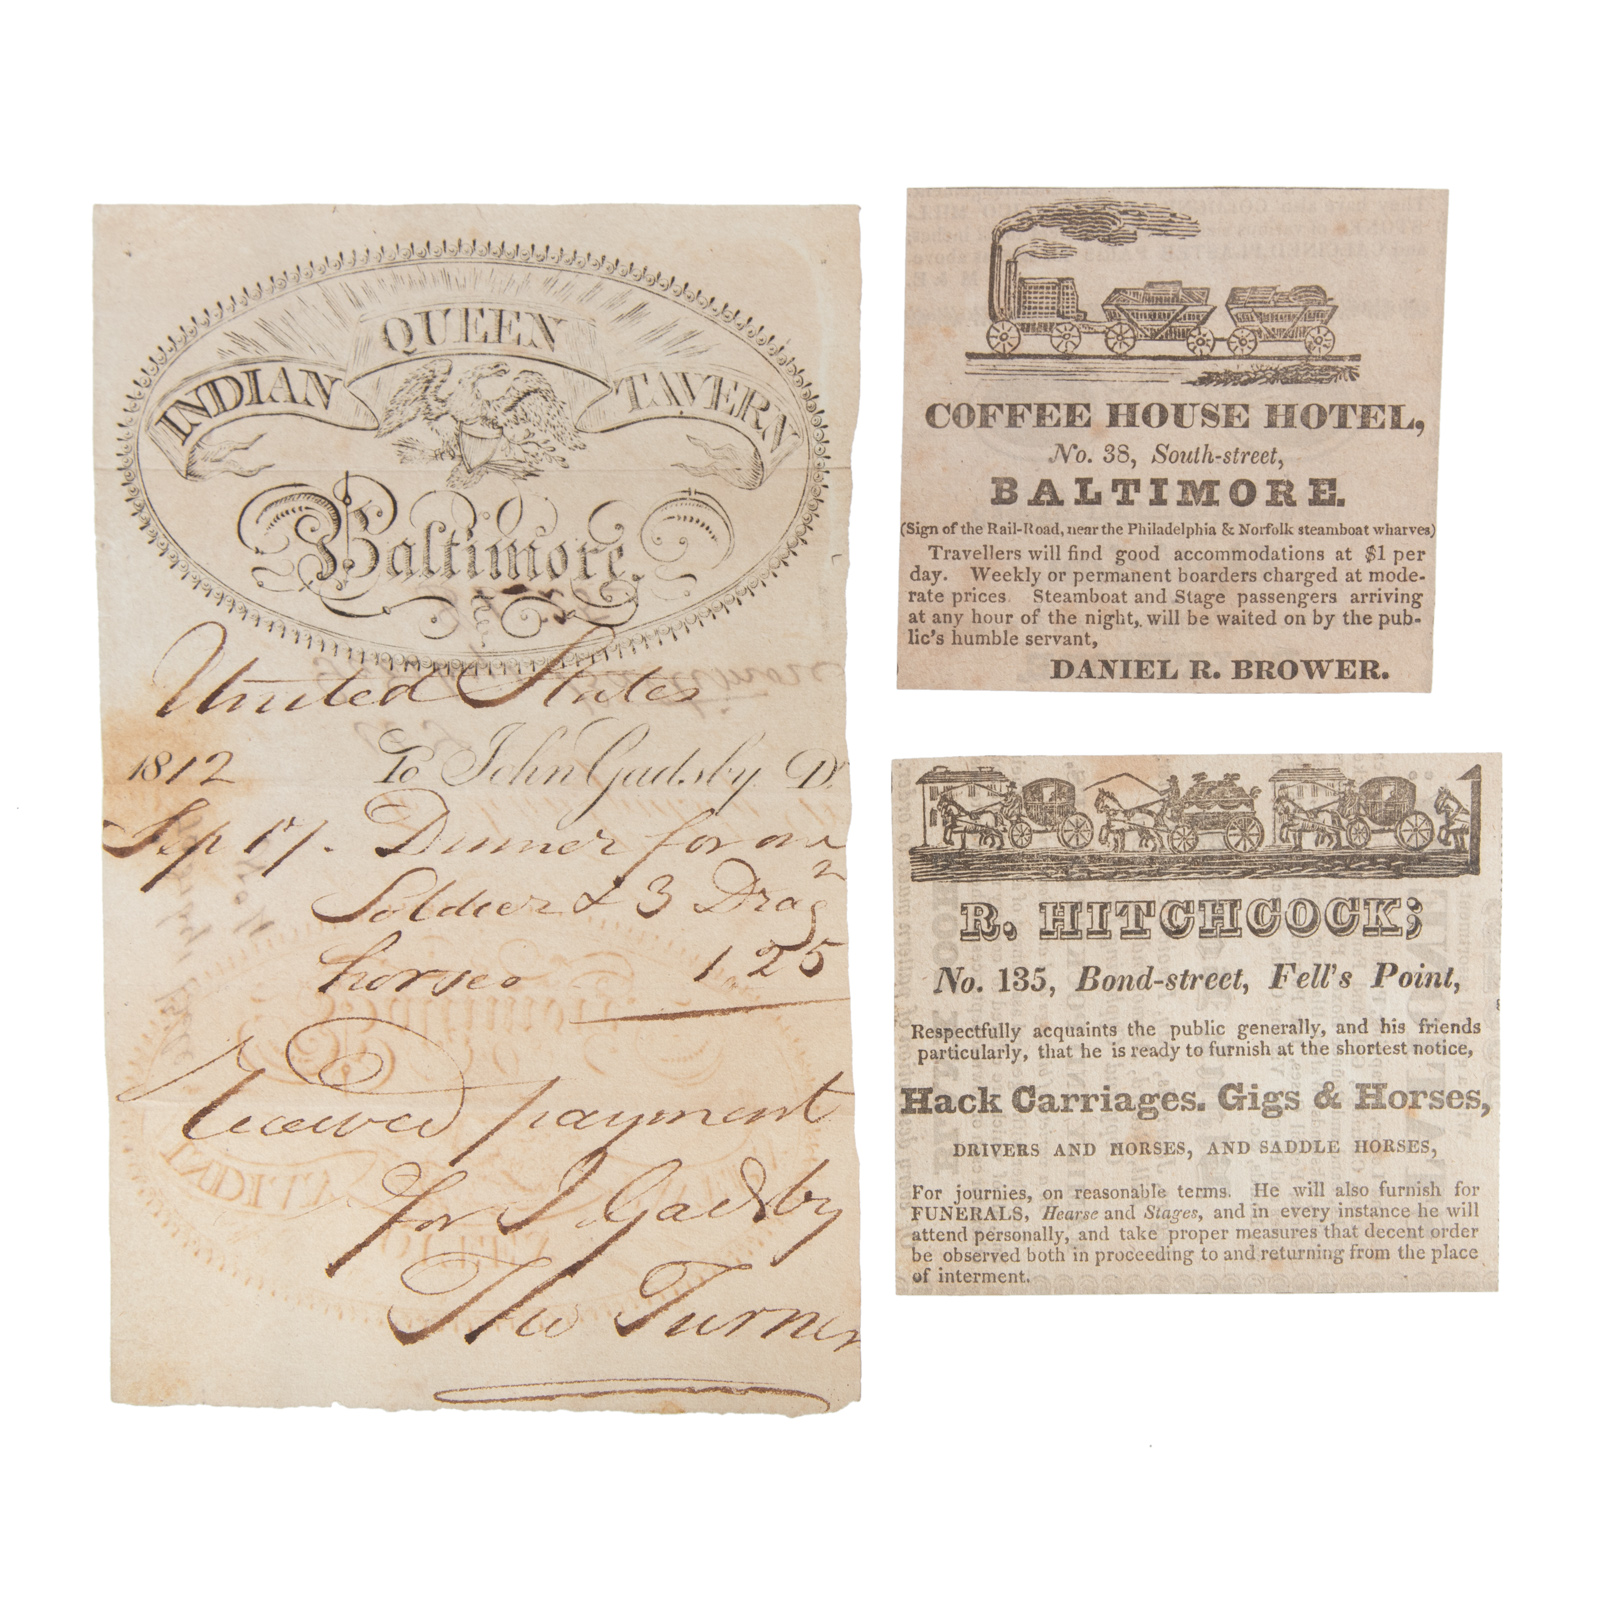 INDIAN QUEEN TAVERN
Baltimore.
United States
1812 To John Gadsby Dr.
Sep 17. Dinner for one
Soldier & 3 Drag
horses 1.25
Received payment
for J Gadsby
Turner
COFFEE HOUSE HOTEL,
No. 38, South-street,
BALTIMORE.
(Sign of the Rail-Road, near the Philadelphia & Norfolk steamboat wharves)
Travellers will find good accommodations at $1 per
day. Weekly or permanent boarders charged at mode-
rate prices. Steamboat and Stage passengers arriving
at any hour of the night, will be waited on by the pub-
lic's humble servant,
DANIEL R. BROWER.
R. HITCHCOCK;
No. 135, Bond-street, Fell's Point,
Respectfully acquaints the public generally, and his friends
particularly, that he is ready to furnish at the shortest notice,
Hack Carriages. Gigs & Horses,
DRIVERS AND HORSES, AND SADDLE HORSES,
For journies, on reasonable terms. He will also furnish for
FUNERALS, Hearse and Stages, and in every instance he will
attend personally, and take proper measures that decent order
be observed both in proceeding to and returning from the place
of interment.